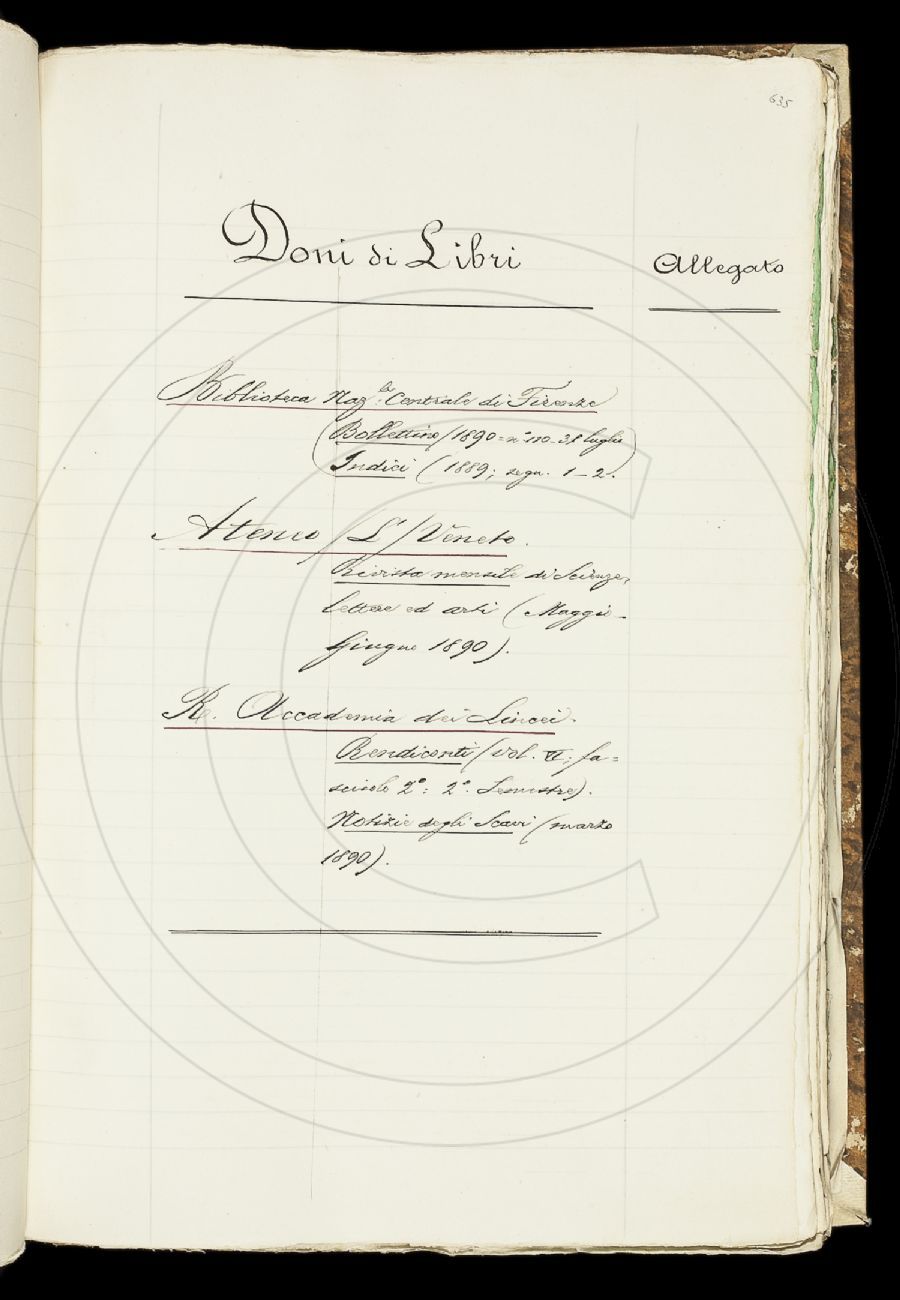 635
Doni di Libri
Allegato
Biblioteca Naz.le Centrale di Firenze
(Bollettino (1890 = n° 110 - 28 luglio)
Indici (1889; segn. 1-2.
Ateneo (L') Veneto.
Rivista mensile di Scienze,
lettere ed arti (Maggio-
Giugno 1890).
R. Accademia dei Lincei.
Rendiconti (vol. VI; fa=
scicolo 2°: 2°. Semestre).
Notizie degli Scavi (marzo
1890).